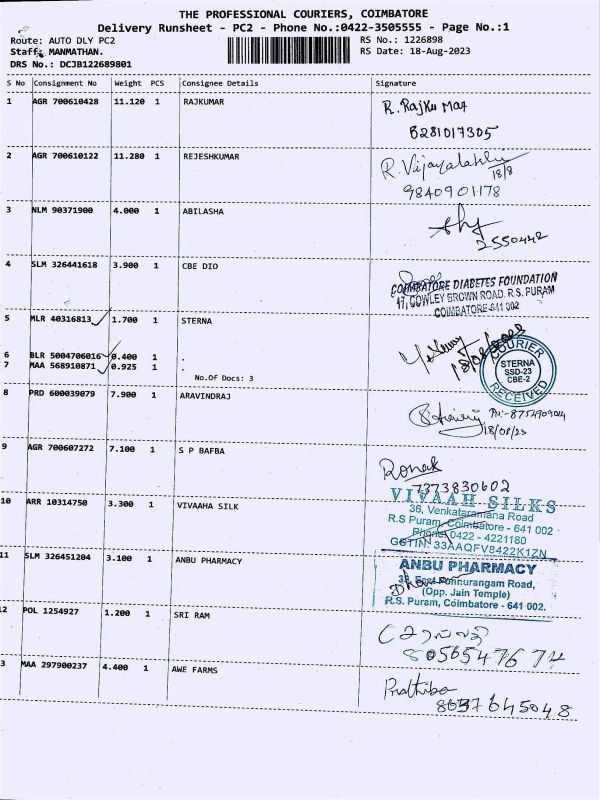 THE PROFESSIONAL COURIERS, COIMBATORE
Delivery Runsheet - PC2 - Phone No.:0422-3505555 - Page No.:1
Route: AUTO DLY PC2
RS No.: 1226898
Staff: MANMATHAN.
RS Date: 18-Aug-2023
DRS No.: DCJB122689801
S No Consignment No Weight PCS Consignee Details Signature
1 AGR 700610428 11.120 1 RAJKUMAR
R. Rajkumar
8281017305
2 AGR 700610122 11.280 1 REJESHKUMAR
R. Vijayalakshmi
18/8
9840901178
3 NLM 90371900 4.000 1 ABILASHA
2550442
4 SLM 326441618 3.900 1 CBE DIO
COIMBATORE DIABETES FOUNDATION
17, COWLEY BROWN ROAD, R.S. PURAM
COIMBATORE-641 002
5 MLR 40316813 1.700 1 STERNA
6 BLR 5004706016 0.400 1 .
7 MAA 568910871 0.925 1 .
No.Of Docs: 3
COURIER
STERNA
SSD-23
CBE-2
RECEIVED
8 PRD 600039079 7.900 1 ARAVINDRAJ
18/08/23
9 AGR 700607272 7.100 1 S P BAFBA
Ronak
7373830602
10 ARR 10314750 3.300 1 VIVAAHA SILK
VIVAAH SILKS
36, Venkataramana Road
R.S Puram, Coimbatore - 641 002
Phone: 0422 - 4221180
GSTIN: 33AAQFV8422K1ZN
11 SLM 326451204 3.100 1 ANBU PHARMACY
ANBU PHARMACY
East Ponnurangam Road,
(Opp. Jain Temple)
R.S. Puram, Coimbatore - 641 002.
12 POL 1254927 1.200 1 SRI RAM
8056547674
3 MAA 297900237 4.400 1 AWE FARMS
Prathiba